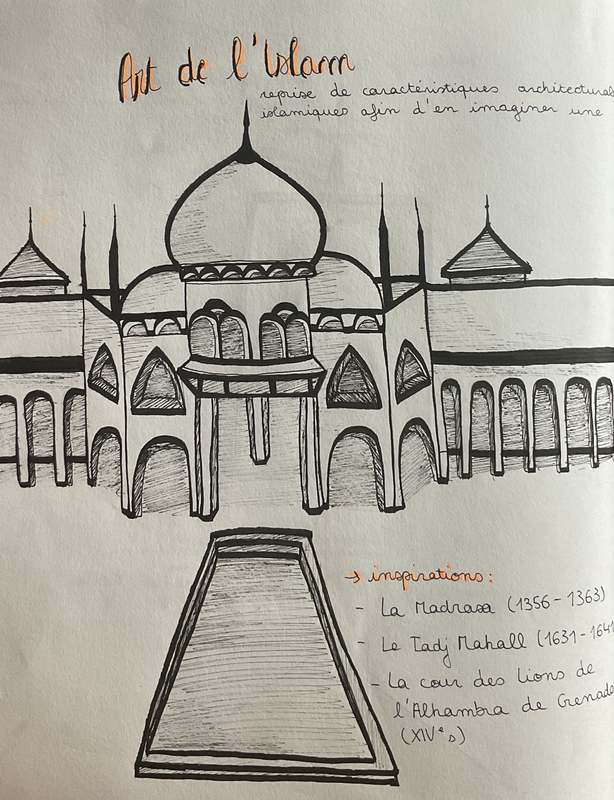 Art de l'Islam
reprise de caractéristiques architectural
islamiques afin d'en imaginer une
→ inspirations:
- La Madrasa (1356-1363)
- Le Tadj Mahall (1631-1641
- La cour des lions de
l'Alhambra de Grenade
(XIVe s)